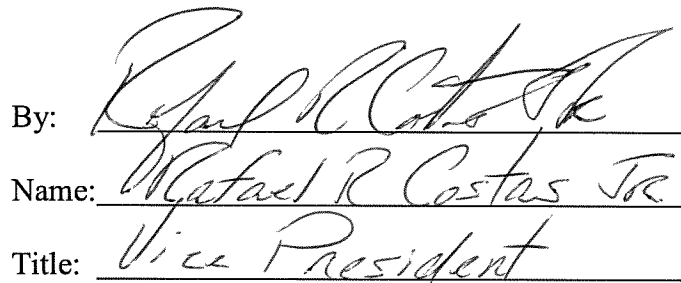 By: Rafael R Costas JR
Name: Rafael R Costas JR
Title: Vice President